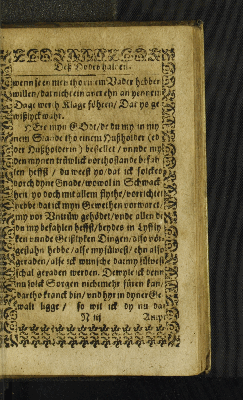 Deß Doden halten.
wenn se en men thorn im Vader hebben
willen / dat nicht ein aver ehn an yennem
Dage wer h Klage föhren /
HEre myn GOdt / de du my in my
nem Stande tho einem Hußholder (ed
der Hußholderin) bestellet / unnde my
den mynen trüwlick vorthostande befal
len heffst / du weest yo / dat ick solckes
dorch dyne Gnade / wowol in Schwack
heit yo doch mit allem flythe / vorrichtet
hebbe dat ick myn Gewethen vorwaret /
my vor Untrüw gehödet / unde allen de
du my befahlen heffst / beydes in Lyffly
ken unnde Geistlyken Dingen / also vor
gestahn hebbe / alse my sülvest / ehn alse
geraden / alse ick wünsche dat my sülvest
schal geraden werden. Dewyle ick denn
nu solck Sorgen nichtmehr füren kan /
dartho kranck bin / und hyr in dyner Ge
walt ligge / so wil ick dy nu dat
N iij